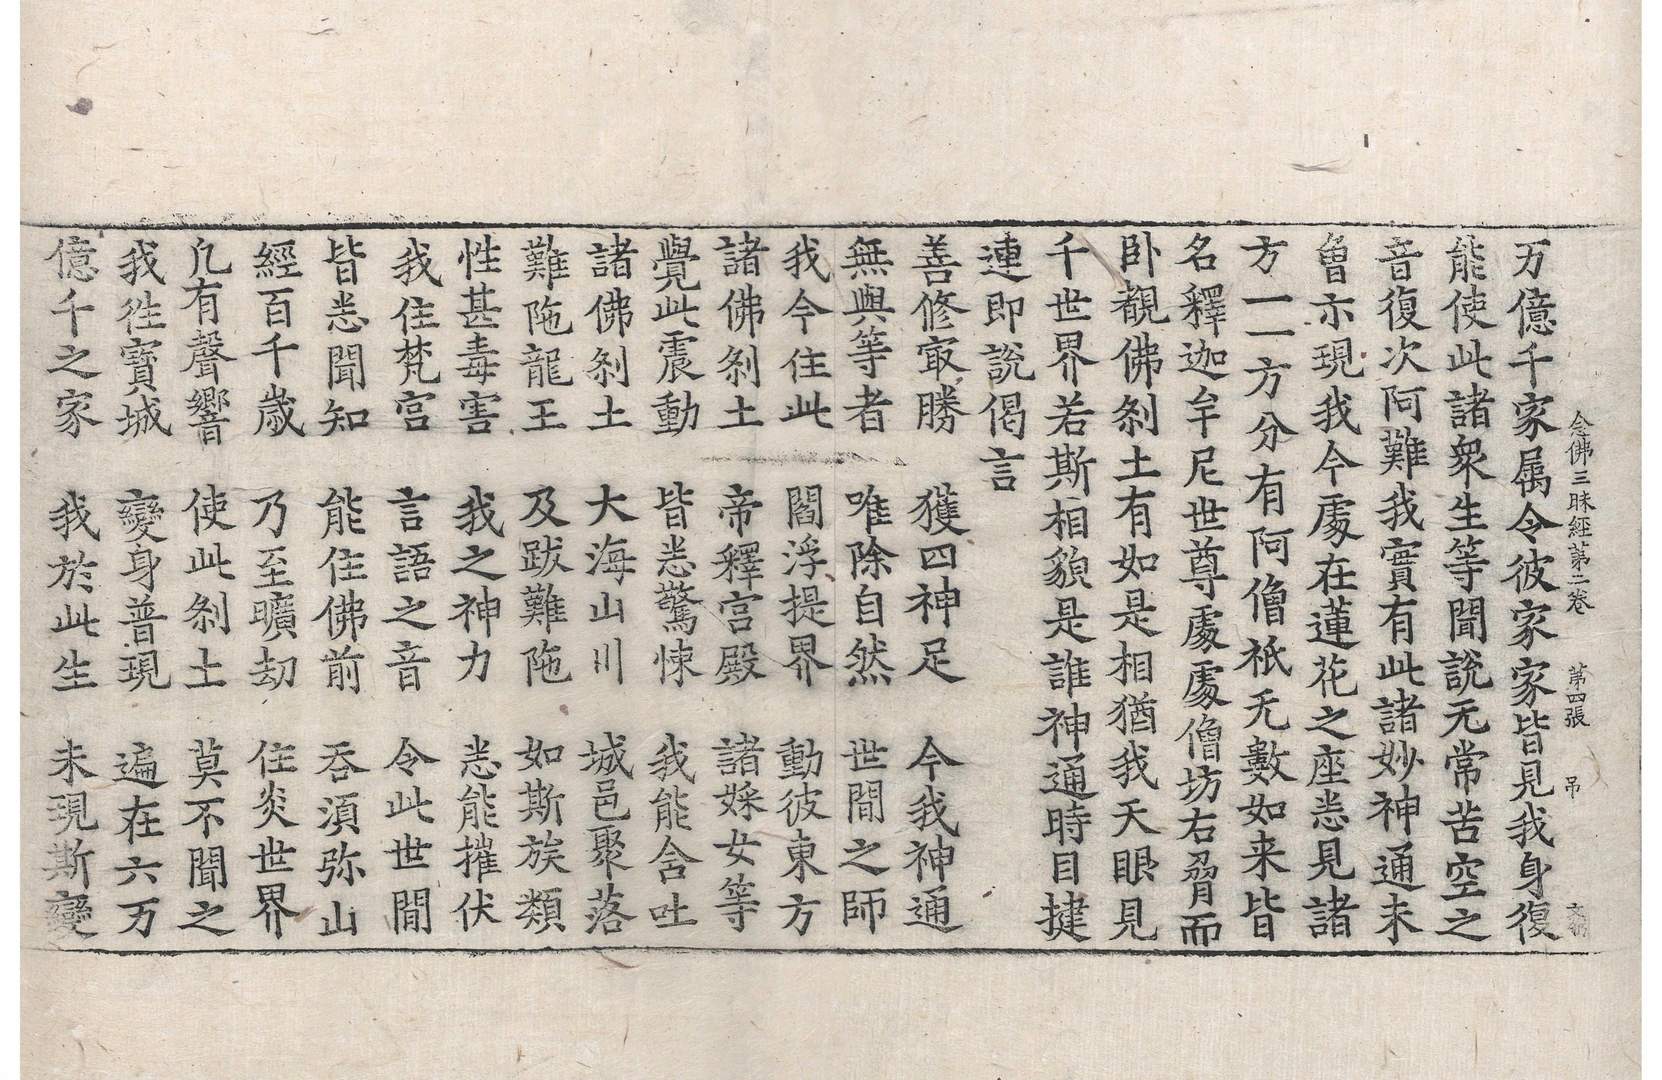 念佛三昧經第二卷 第四張 弔
万億千家属令彼家家皆見我身復
能使此諸衆生等聞說无常苦空之
音復次阿難我實有此諸妙神通未
曾示現我今處在蓮花之座悉見諸
方一一方分有阿僧祇无數如来皆
名釋迦牟尼世尊處處僧坊右脅而
卧覩佛刹土有如是相猶我天眼見
千世界若斯相貌是誰神通時目揵
連即說偈言
善修㝡勝 獲四神足 今我神通
無與等者 唯除自然 世間之師
我今住此 閻浮提界 動彼東方
諸佛刹土 帝釋宫殿 諸婇女等
覺此震動 皆悉驚悚 我能含吐
諸佛刹土 大海山川 城邑聚落
難陁龍王 及跋難陁 如斯族類
性甚毒害 我之神力 悉能摧伏
我住梵宫 言語之音 令此世間
皆悉聞知 能住佛前 吞須弥山
經百千歲 乃至曠劫 住炎世界
凢有聲響 使此刹土 莫不聞之
我徃寳城 變身普現 遍在六万
億千之家 我於此生 未現斯變